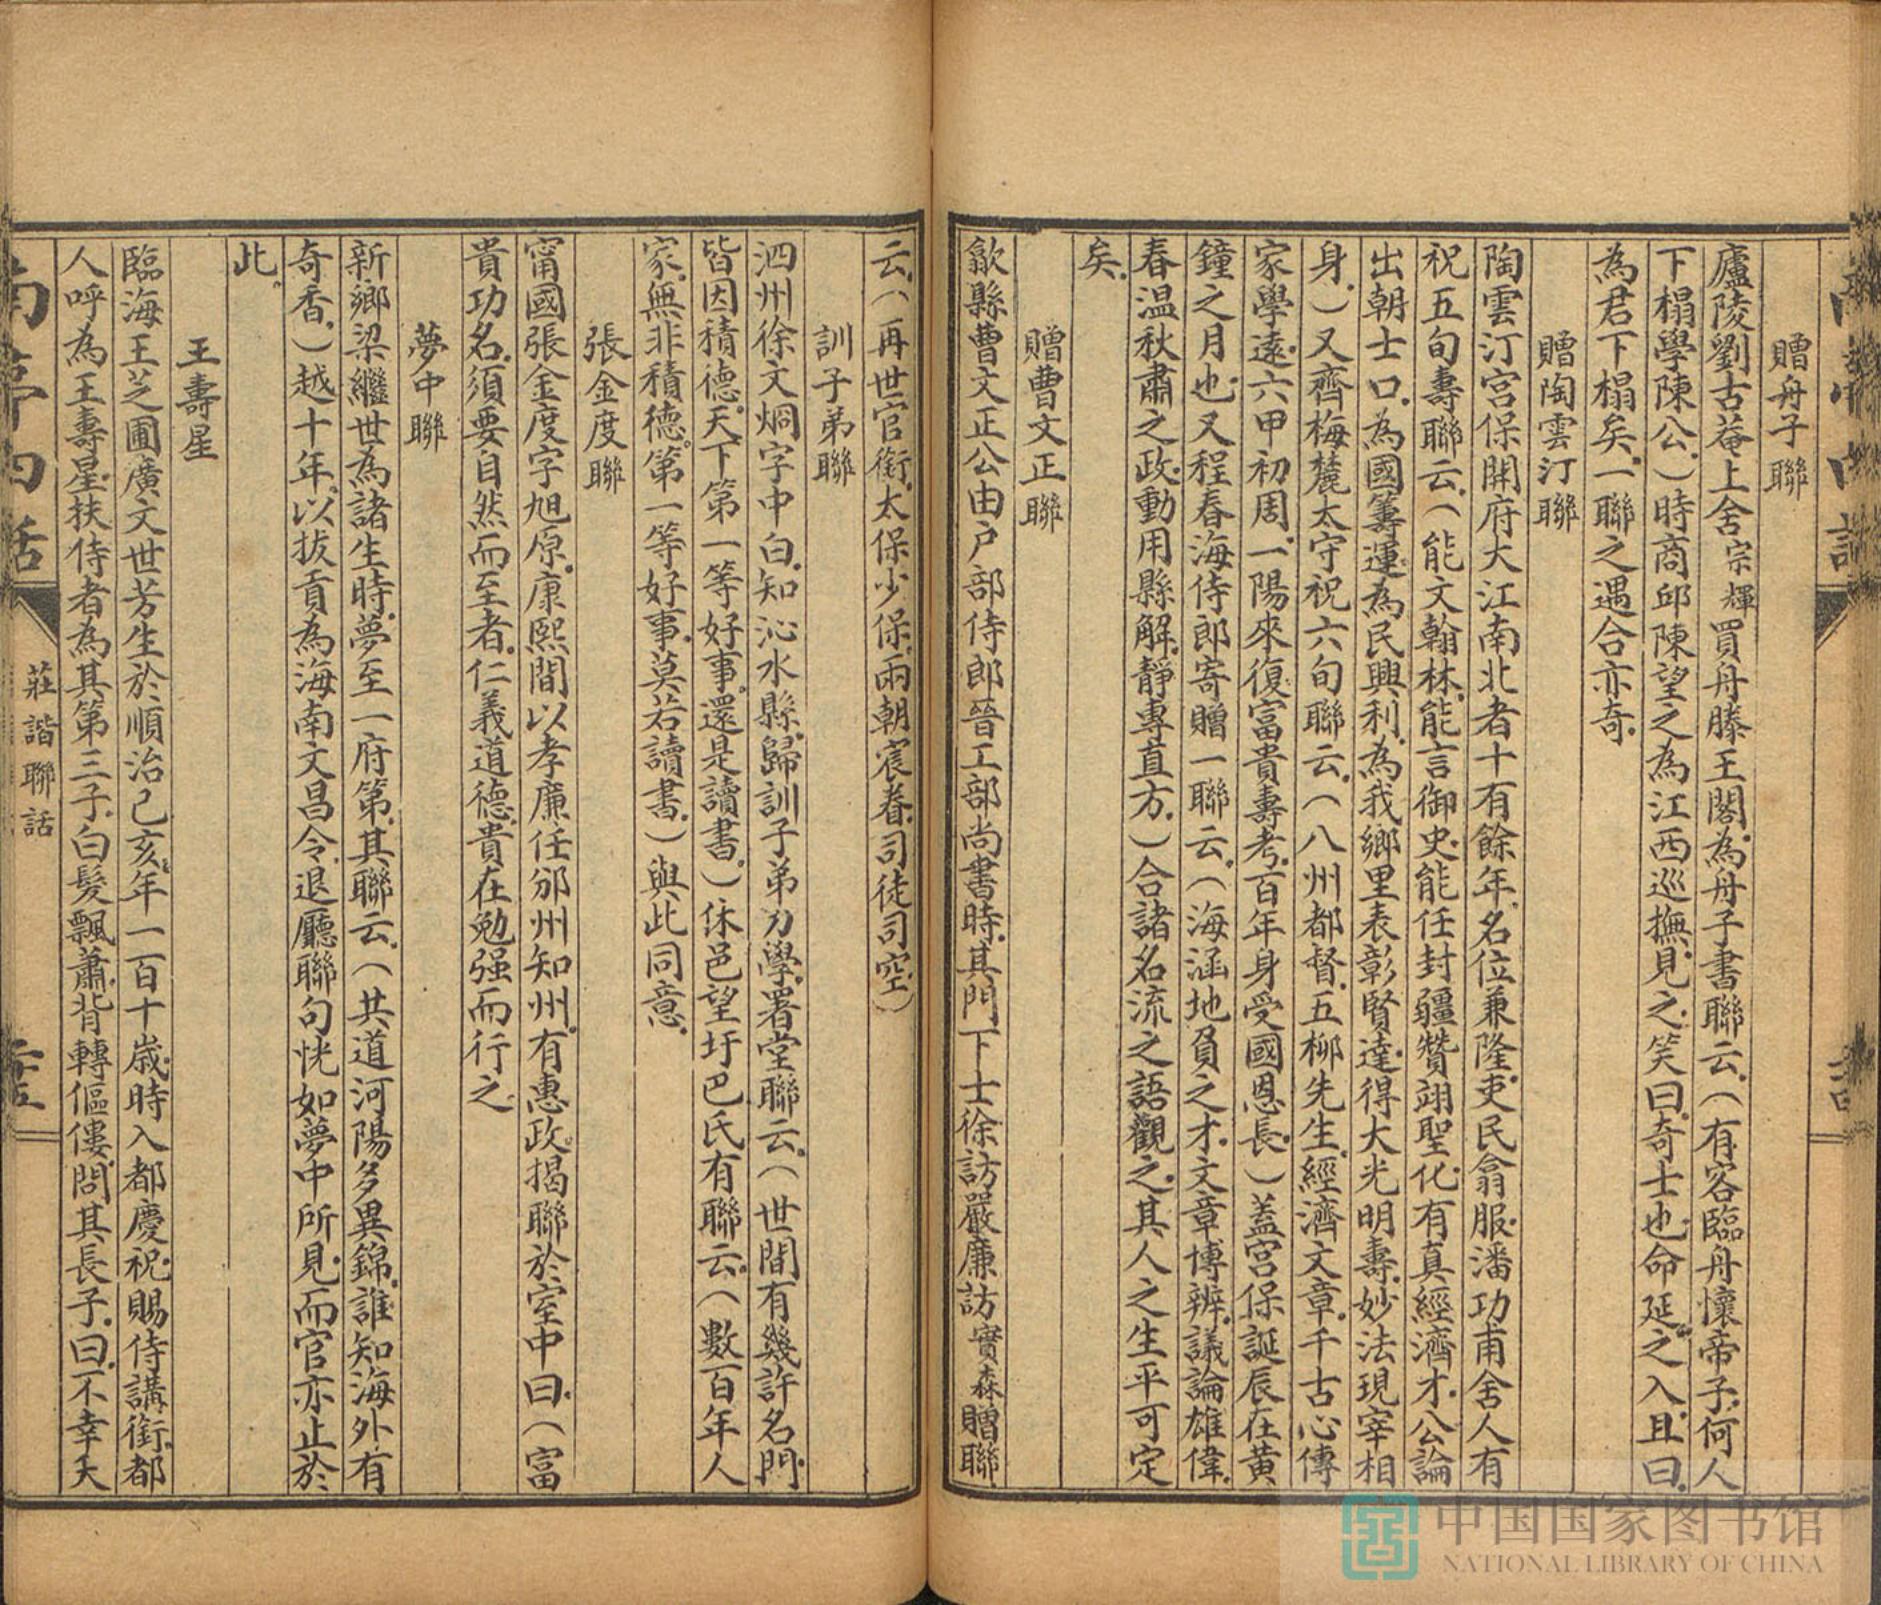 贈舟子聯
廬陵劉古菴上舍宗輝買舟滕王閣。為舟子書聯云。（有客臨舟懷帝子。何人
下榻學陳公。）時商邱陳望之為江西巡撫。見之。笑曰。奇士也。命延之入。且曰。
為君下榻矣。一聯之遇合亦奇。
贈陶雲汀聯
陶雲汀宮保開府大江南北者十有餘年。名位兼隆。吏民翕服。潘功甫舍人有
祝五旬壽聯云。（能文翰林。能言御史。能任封疆贊翊聖化。有真經濟才。公論
出朝士口。為國籌運。為民興利。為我鄉里表彰賢達。得大光明壽。妙法現宰相
身。）又齊梅麓太守祝六旬聯云。（八州都督。五柳先生。經濟文章。千古心傳
家學遠。六甲初周。一陽來復。富貴壽考。百年身受國恩長。）蓋宮保誕辰在黃
鐘之月也。又程春海侍郎寄贈一聯云。（海涵地負之才。文章博辨。議論雄偉。
春温秋肅之政。動用縣解。靜專直方。）合諸名流之語觀之。其人之生平可定
矣。
贈曹文正聯
歙縣曹文正公由户部侍郎晉工部尚書時。其門下士徐訪嚴廉訪寶森贈聯
云。（再世官銜。太保少保。兩朝宸眷。司徒司空。）
訓子弟聯
泗州徐文烱字中白。知沁水縣。歸訓子弟力學。署堂聯云。（世間有幾許名門。
皆因積德。天下第一等好事。還是讀書。）休邑望圩巴氏有聯云。（數百年人
家。無非積德。第一等好事。莫若讀書。）與此同意。
張金度聯
甯國張金度字旭原。康熙間以孝廉任邠州知州。有惠政。揭聯於室中曰。（富
貴功名。須要自然而至者。仁義道德。貴在勉强而行之。
夢中聯
新鄉梁繼世為諸生時。夢至一府第。其聯云。（共道河陽多異錦。誰知海外有
奇香。）越十年。以拔貢為海南文昌令。退廳聯句恍如夢中所見。而官亦止於
此。
王壽星
臨海王芝圃廣文世芳生於順治己亥。年一百十歲。時入都慶祝。賜侍講銜。都
人呼為王壽星。扶侍者為其第三子。白髮飄蕭。背轉傴僂。問其長子。曰。不幸夭
莊諧聯話